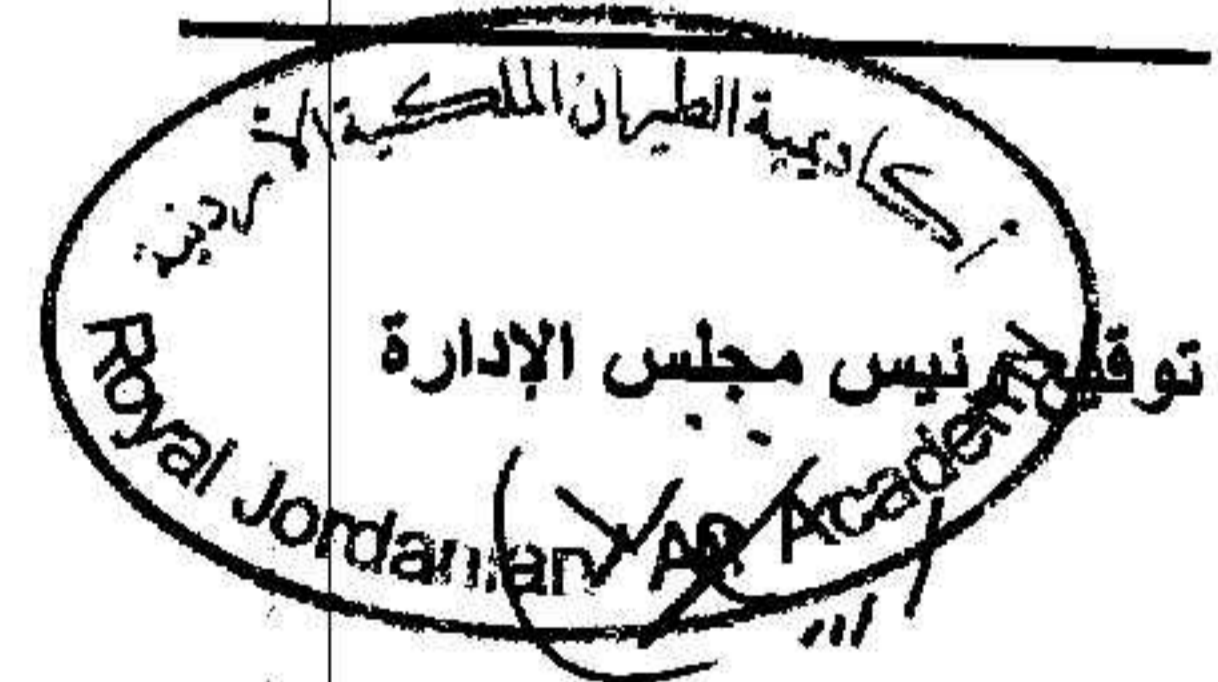 أكاديمية الطيران الملكية الأردنية
توقيع رئيس مجلس الإدارة
Royal Jordanian Air Academy